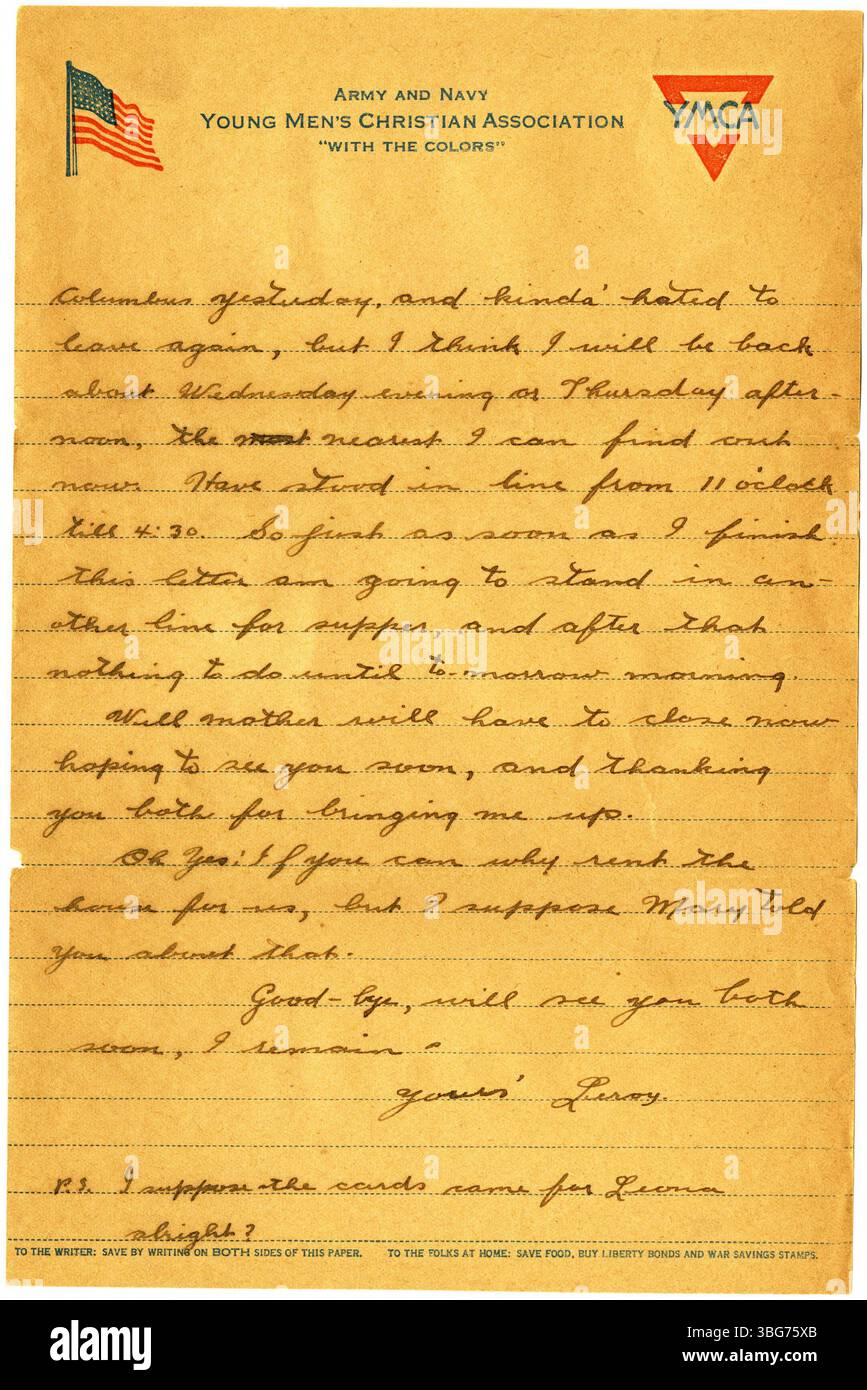 ARMY AND NAVY
YOUNG MEN'S CHRISTIAN ASSOCIATION
"WITH THE COLORS"
YMCA
Columbus yesterday, and kinda' hated to
leave again, but I think I will be back
about Wednesday evening or Thursday after-
noon, the most nearest I can find out
now. Have stood in line from 11 o'clock
till 4:30. So just as soon as I finish
this letter am going to stand in an-
other line for supper, and after that
nothing to do until to-morrow morning.
Will mother will have to close now
hoping to see you soon, and thanking
you both for bringing me up.
Oh Yes! If you can why rent the
house for us, but I suppose Mary told
you about that.
Good-bye, will see you both
soon, I remain
yours' Leroy.
P.S. I suppose the cards came for Leona
alright?
TO THE WRITER: SAVE BY WRITING ON BOTH SIDES OF THIS PAPER. TO THE FOLKS AT HOME: SAVE FOOD, BUY LIBERTY BONDS AND WAR SAVINGS STAMPS.
alamy
Image ID: 3BG75XB
www.alamy.com